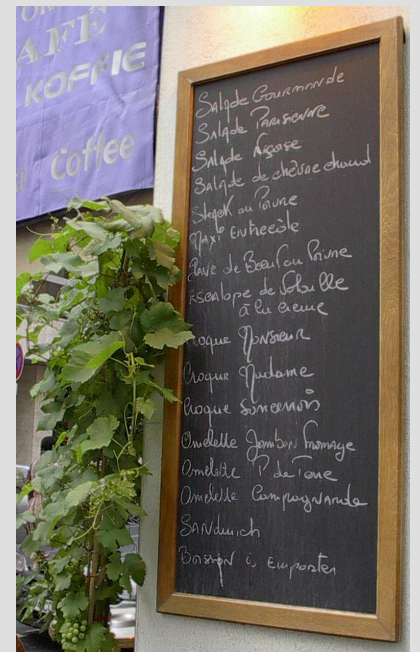 AFÉ
KOFFIE
Coffee
Salade Gourmande
Salade Parisienne
Salade Niçoise
Salade de chèvre chaud
Steak au Poivre
Maxi Entrecôte
Pavé de Boeuf au Poivre
Escalope de Volaille
à la creme
Croque Monsieur
Croque Madame
Croque
Omelette Jambon Fromage
Omelette P. de Terre
Omelette Campagnarde
SANDwich
Boisson à Emporter